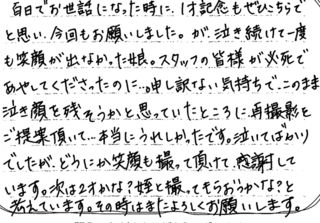 百日でお世話になった時に、1才記念もぜひこちらで
と思い、今回もお願いしました。が、泣き続けて一度
も笑顔が出なかった娘。スタッフの皆様が必死で
あやしてくださったのに…。申し訳ない気持ちで、このまま
泣き顔を残そうかと思っていたところに、再撮影を
ご提案頂いて…本当にうれしかったです。泣いてばかり
でしたが、どうにか笑顔も撮って頂けて、感謝して
います。次は2才かな?姪と撮ってもらおうかな?と
考えています。その時はまたよろしくお願いします。